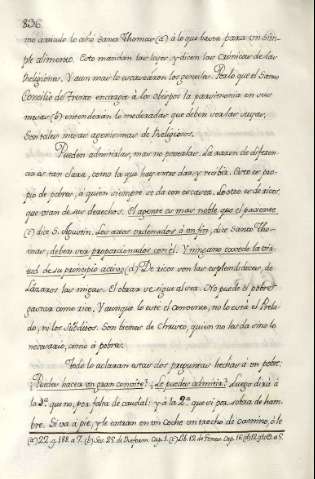 836.
no añade lo echó Santo Thomas (a) a lo que basta para un Sim-
ple alimento. Esto mandan las leyes, y dicen las Crónicas de las
Religiones. Y aun mas lo escusaron los gentiles. Por lo que el Santo
Concilio de Trento encarga à los obispos la parsimonia en sus
mesas (b) entenderán lo moderadas que deben ser las suyas,
Son tales mesas agenisimas de Religiosos.
Pueden admitirlas, mas no ponerlas. La razon de diferen-
cia es tan clara, como la que hay entre dar, y recibir. Este es pro-
pio de pobres, à quien siempre se da con escasez. Lo otro es de ricos,
que usan de sus derechos. El agente es mas noble que el paciente
(c) dice S. Agustin. Los actos ordenados à un fin, dice Santo Tho-
mas, deben ser proporcionados con él. Y ninguno excede la vir-
tud de su principio activo (d) De ricos son las esplendideces, de
Lázaros las migas. El obrar se sigue al ser. No puede el pobre
gastar como rico, Y aunque lo esté el convento, no lo está el Prela-
do, ni los Súbditos. Son bienes de Christo, quien no les da sino lo
necesario, como à pobres.
Todo lo aclaran estas dos preguntas hechas à un pobre:
¿Puedes hacer un gran convite? ¿Le puedes admitir? Luego dirá à
la 1.ª que no, por falta de caudal: y à la 2.ª que si por sobra de ham-
bre. Si va à pie, y le entran en un coche un trecho de camino, ò le
(a) 22. q. 188. a. 7. (b) Ses. 25. de Reform. Cap. 1. (c) Lib. 12. de Genes. Cap. 16 (d) 12. q. 109. a. 5.